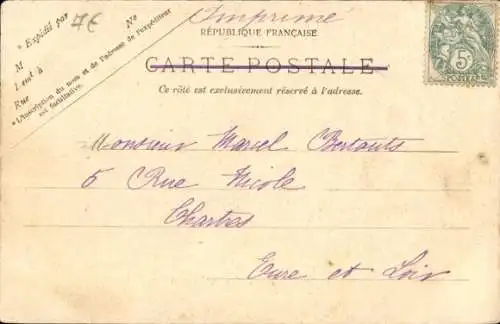 Imprimé
7€
RÉPUBLIQUE FRANÇAISE
CARTE POSTALE
Ce côté est exclusivement réservé à l'adresse.
* Expédié par
M No
Demt à
Rue
*L'inscription du nom et de l'adresse de l'expéditeur
est facultative.
5c
POSTES
Monsieur Marcel Bertauts
5 Rue Nicole
Chartres
Eure et Loir